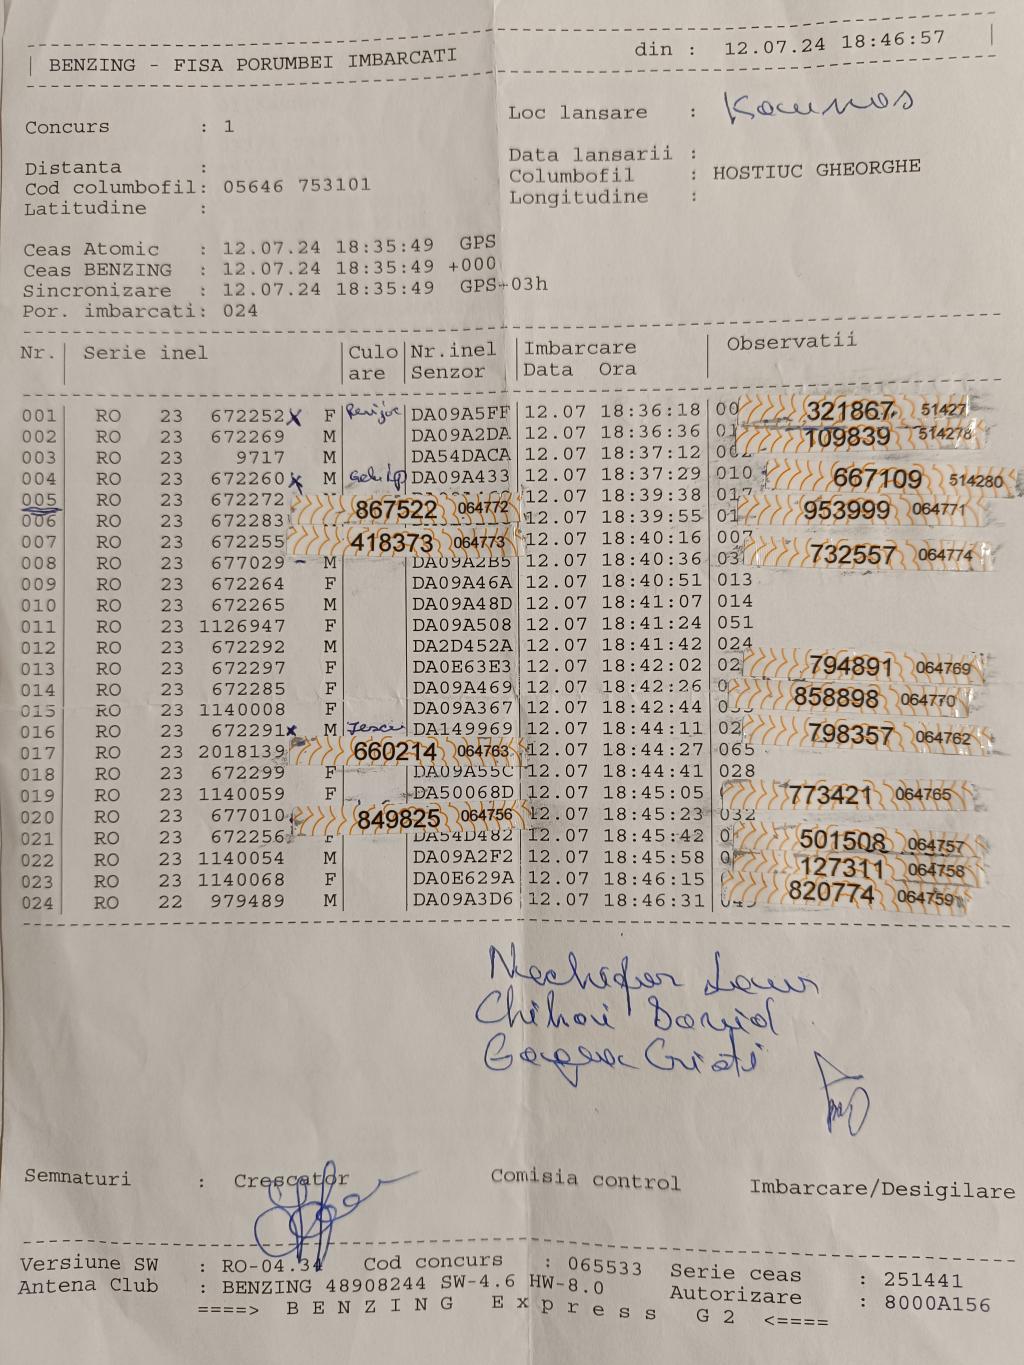 BENZING - FISA PORUMBEI IMBARCATI din : 12.07.24 18:46:57
Concurs : 1 Loc lansare :
Distanta : Data lansarii :
Cod columbofil: 05646 753101 Columbofil : HOSTIUC GHEORGHE
Latitudine : Longitudine :
Ceas Atomic : 12.07.24 18:35:49 GPS
Ceas BENZING : 12.07.24 18:35:49 +000
Sincronizare : 12.07.24 18:35:49 GPS+03h
Por. imbarcati: 024
Nr. Serie inel Culo Nr.inel Imbarcare Observatii
are Senzor Data Ora
001 RO 23 672252 x F DA09A5FF 12.07 18:36:18 00 321867 51427
002 RO 23 672269 M DA09A2DA 12.07 18:36:36 01 109839 514278
003 RO 23 9717 M DA54DACA 12.07 18:37:12
004 RO 23 672260 x M DA09A433 12.07 18:37:29 010 667109 514280
005 RO 23 672272 867522 064772 12.07 18:39:38 953999 064771
006 RO 23 672283 12.07 18:39:55 01
007 RO 23 672255 418373 064773 12.07 18:40:16 007 732557 064774
008 RO 23 677029 - M DA09A2B5 12.07 18:40:36 03
009 RO 23 672264 F DA09A46A 12.07 18:40:51 013
010 RO 23 672265 M DA09A48D 12.07 18:41:07 014
011 RO 23 1126947 F DA09A508 12.07 18:41:24 051
012 RO 23 672292 M DA2D452A 12.07 18:41:42 024
013 RO 23 672297 F DA0E63E3 12.07 18:42:02 02 794891 064769
014 RO 23 672285 F DA09A469 12.07 18:42:26 0 858898 064770
015 RO 23 1140008 F DA09A367 12.07 18:42:44
016 RO 23 672291 x M DA149969 12.07 18:44:11 02 798357 064762
017 RO 23 2018139 660214 064763 12.07 18:44:27 065
018 RO 23 672299 F DA09A55C 12.07 18:44:41 028
019 RO 23 1140059 F DA50068D 12.07 18:45:05 773421 064765
020 RO 23 677010 849825 064756 12.07 18:45:23 032
021 RO 23 672256 F DA54D482 12.07 18:45:42 0 501508 064757
022 RO 23 1140054 M DA09A2F2 12.07 18:45:58 0 127311 064758
023 RO 23 1140068 F DA0E629A 12.07 18:46:15 820774 064759
024 RO 22 979489 M DA09A3D6 12.07 18:46:31
Nechifor
Chihai David
Cristi
Semnaturi : Crescator Comisia control Imbarcare/Desigilare
Versiune SW : RO-04.34 Cod concurs : 065533 Serie ceas : 251441
Antena Club : BENZING 48908244 SW-4.6 HW-8.0 Autorizare : 8000A156
====> B E N Z I N G E x p r e s s G 2 <====